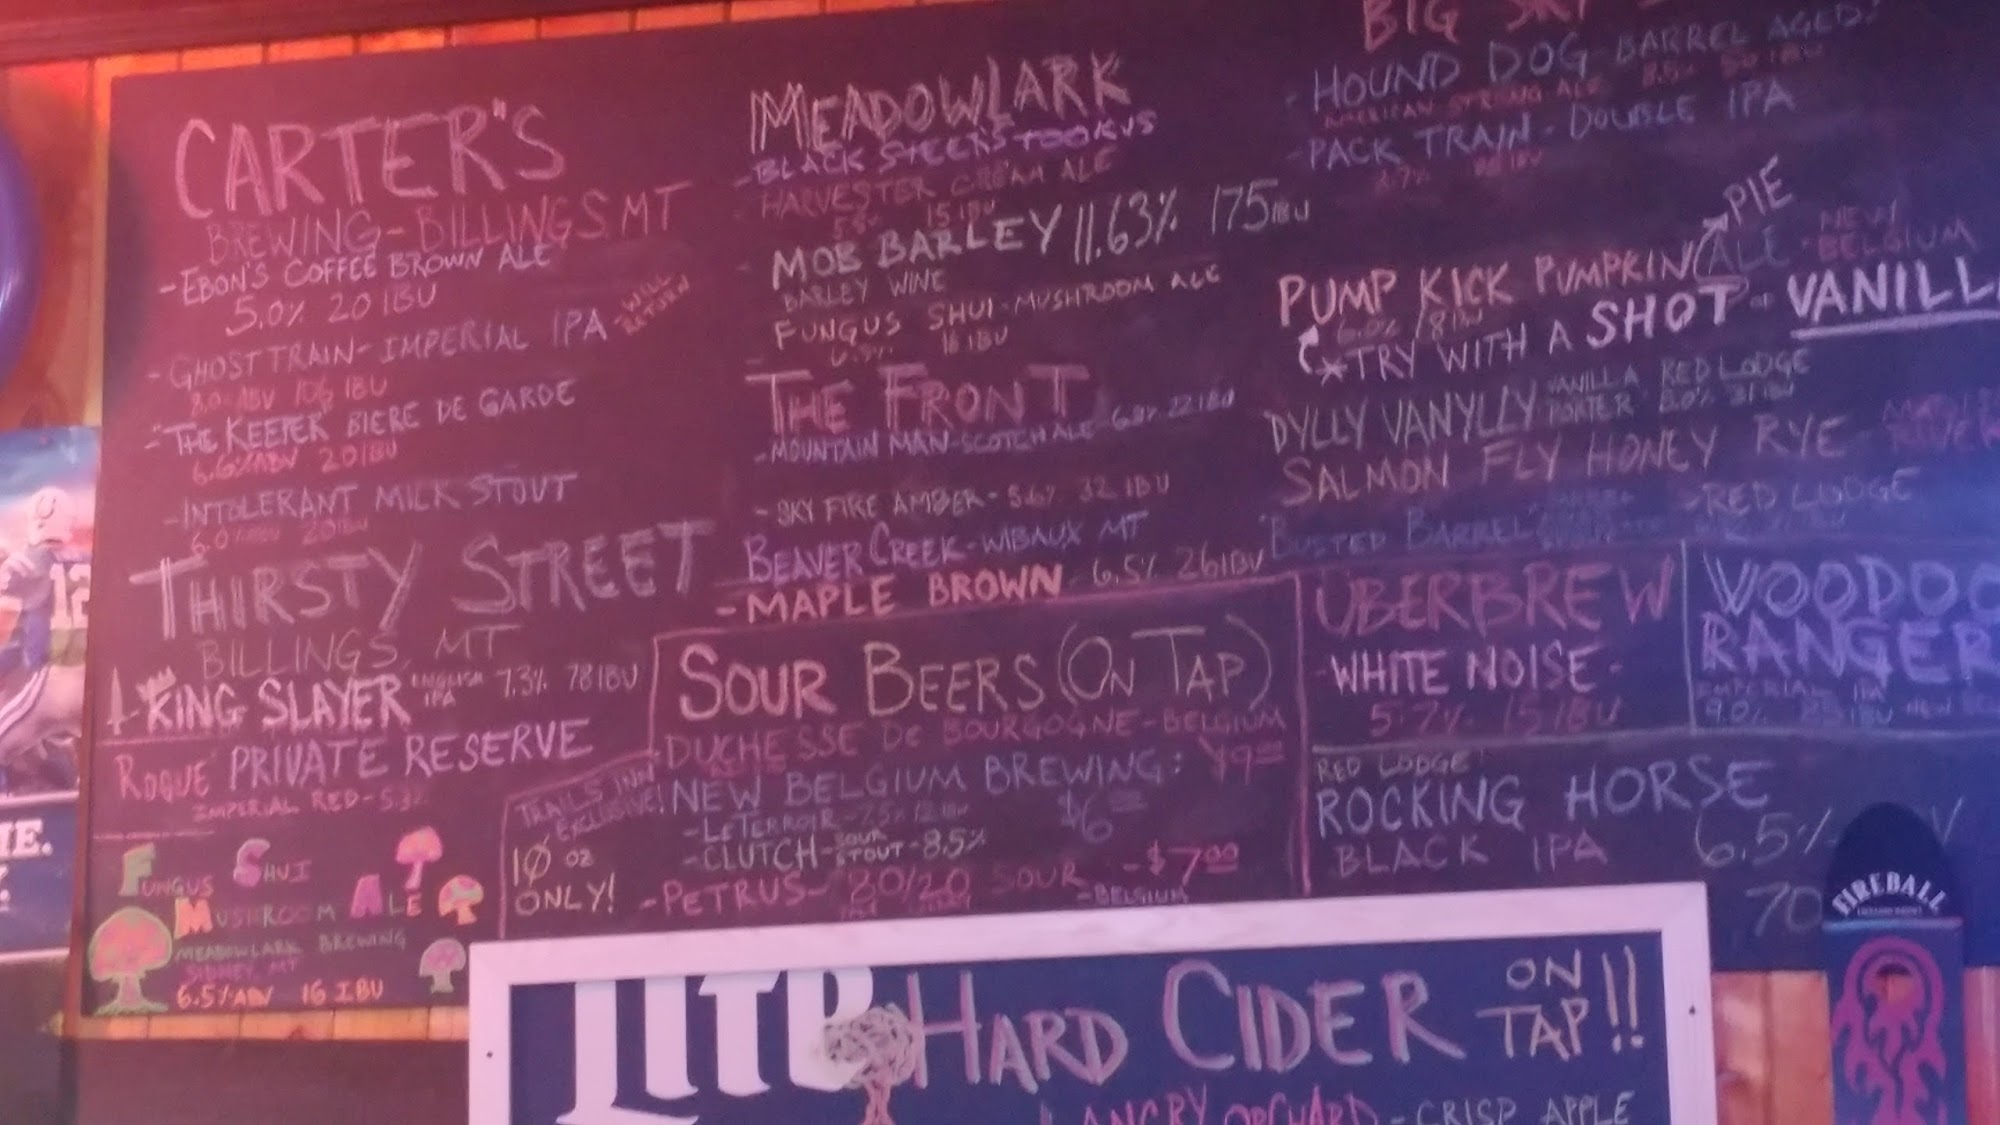 CARTER'S
BREWING-BILLINGS, MT
-EBON'S COFFEE BROWN ALE
5.0% 20 IBU
-GHOST TRAIN-IMPERIAL IPA WILL RETURN
8.0% ABV 106 IBU
-"THE KEEPER" BIERE DE GARDE
6.6% ABV 20 IBU
-INTOLERANT MILK STOUT
6.0% ABV 20 IBU
THIRSTY STREET
BILLINGS, MT
KING SLAYER ENGLISH IPA 7.3% 78 IBU
ROGUE PRIVATE RESERVE
IMPERIAL RED
FUNGUS SHUI
MUSHROOM ALE
MEADOWLARK BREWING
SIDNEY, MT
6.5% ABV 16 IBU
MEADOWLARK
-BLACK STEER'S TOOKUS
HARVESTER CREAM ALE
15 IBU
MOB BARLEY 11.63% 175 IBU
BARLEY WINE
FUNGUS SHUI-MUSHROOM ALE
16 IBU
THE FRONT
-MOUNTAIN MAN-SCOTCH ALE 22 IBU
-SKY FIRE AMBER-5.6% 32 IBU
BEAVER CREEK-WIBAUX MT
-MAPLE BROWN 6.5% 26 IBU
SOUR BEERS (ON TAP)
-DUCHESSE DE BOURGOGNE-BELGIUM
$9.00
NEW BELGIUM BREWING:
$6.00
-LE TERROIR-7.5%
-CLUTCH-SOUR STOUT-8.5%
-PETRUS-80/20 SOUR -$7.00
-BELGIUM
TRAILS INN
EXCLUSIVE!
10 OZ
ONLY!
BIG SKY
-HOUND DOG-BARREL AGED!
AMERICAN STRONG ALE 8.5% 50 IBU
-PACK TRAIN-DOUBLE IPA
PIE
PUMP KICK PUMPKIN ALE-NEW BELGIUM
6.0% 18 IBU
*TRY WITH A SHOT OF VANILL
DYLLY VANYLLY VANILLA PORTER RED LODGE
8.0% 31 IBU
SALMON FLY HONEY RYE
"BUSTED BARREL"
-RED LODGE
ÜBERBREW
-WHITE NOISE-
5.2% 15 IBU
VOODOO
RANGER
IMPERIAL IPA
9.0%
RED LODGE
ROCKING HORSE
BLACK IPA
6.5%
70
FIREBALL
Lite
HARD CIDER ON TAP!!
ANGRY ORCHARD-CRISP APPLE
12